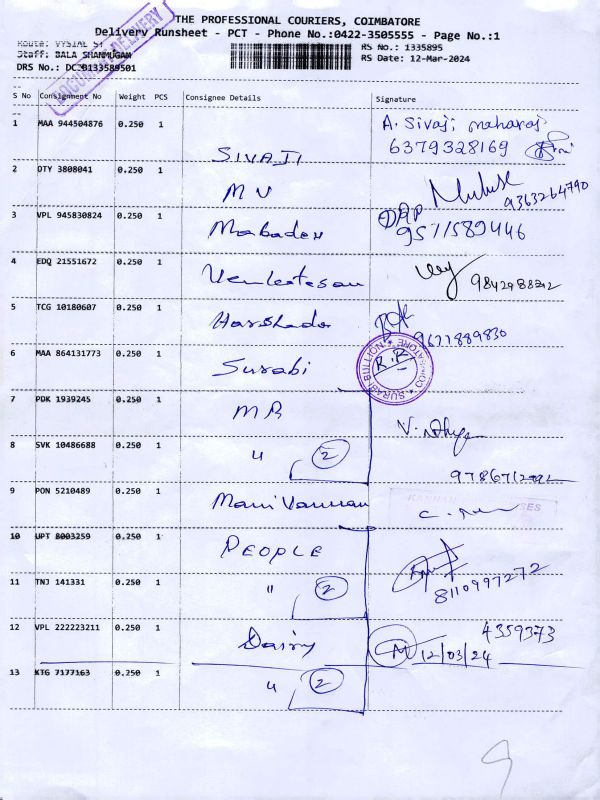 THE PROFESSIONAL COURIERS, COIMBATORE
Delivery Runsheet - PCT - Phone No.:0422-3505555 - Page No.:1
Route: VYSIAL ST
Staff: BALA SHANMUGAM
DRS No.: DCJB133589501
RS No.: 1335895
RS Date: 12-Mar-2024
DOCUMENT DELIVERY
S No Consignment No Weight PCS Consignee Details Signature
1 MAA 944504876 0.250 1 SIVAJI A. Sivaji maharaj. 6379328169
2 OTY 3808041 0.250 1 MV 9363264790
3 VPL 945830824 0.250 1 Mahadev 9571589446
4 EDQ 21551672 0.250 1 Venkatesan
5 TCG 10180607 0.250 1 Harshada 9677889830
6 MAA 864131773 0.250 1 Surabi R.R
SURABI BULLION COIMBATORE
7 PDK 1939245 0.250 1 MB
8 SVK 10486688 0.250 1 " 2
9 PON 5210489 0.250 1 Manivannan
10 UPT 8003259 0.250 1 PEOPLE
11 TNJ 141331 0.250 1 " 2 8110997272
12 VPL 222223211 0.250 1 Dairy 4359373
12/03/24
13 KTG 7177163 0.250 1 " 2
9